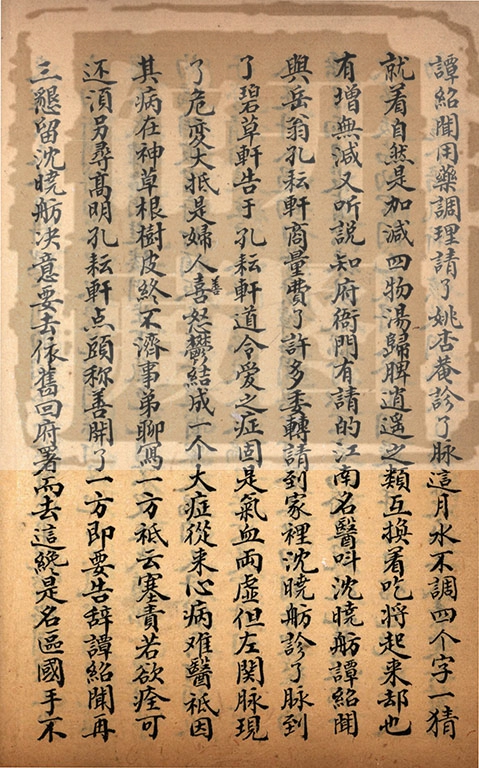 譚紹聞用藥調理請了姚杏菴診了脉這月水不調四个字一猜
就着自然是加減四物湯歸脾逍遥之類互換着吃將起来却也
有增無減又听説知府衙門有請的江南名醫叫沈曉舫譚紹聞
與岳翁孔耘軒商量費了許多委轉請到家裡沈曉舫診了脉到
了碧草軒告于孔耘軒道令爱之症固是氣血両虛但左関脉現
了危变大抵是婦人善喜怒鬱結成一个大症從来心病难醫祗因
其病在神草根樹皮終不濟事弟聊寫一方祗云塞責若欲痊可
还湏另尋髙明孔耘軒点頭称善開了一方即要告辞譚紹聞再
三懇留沈曉舫决意要去依舊回府署而去這纔是名區國手不